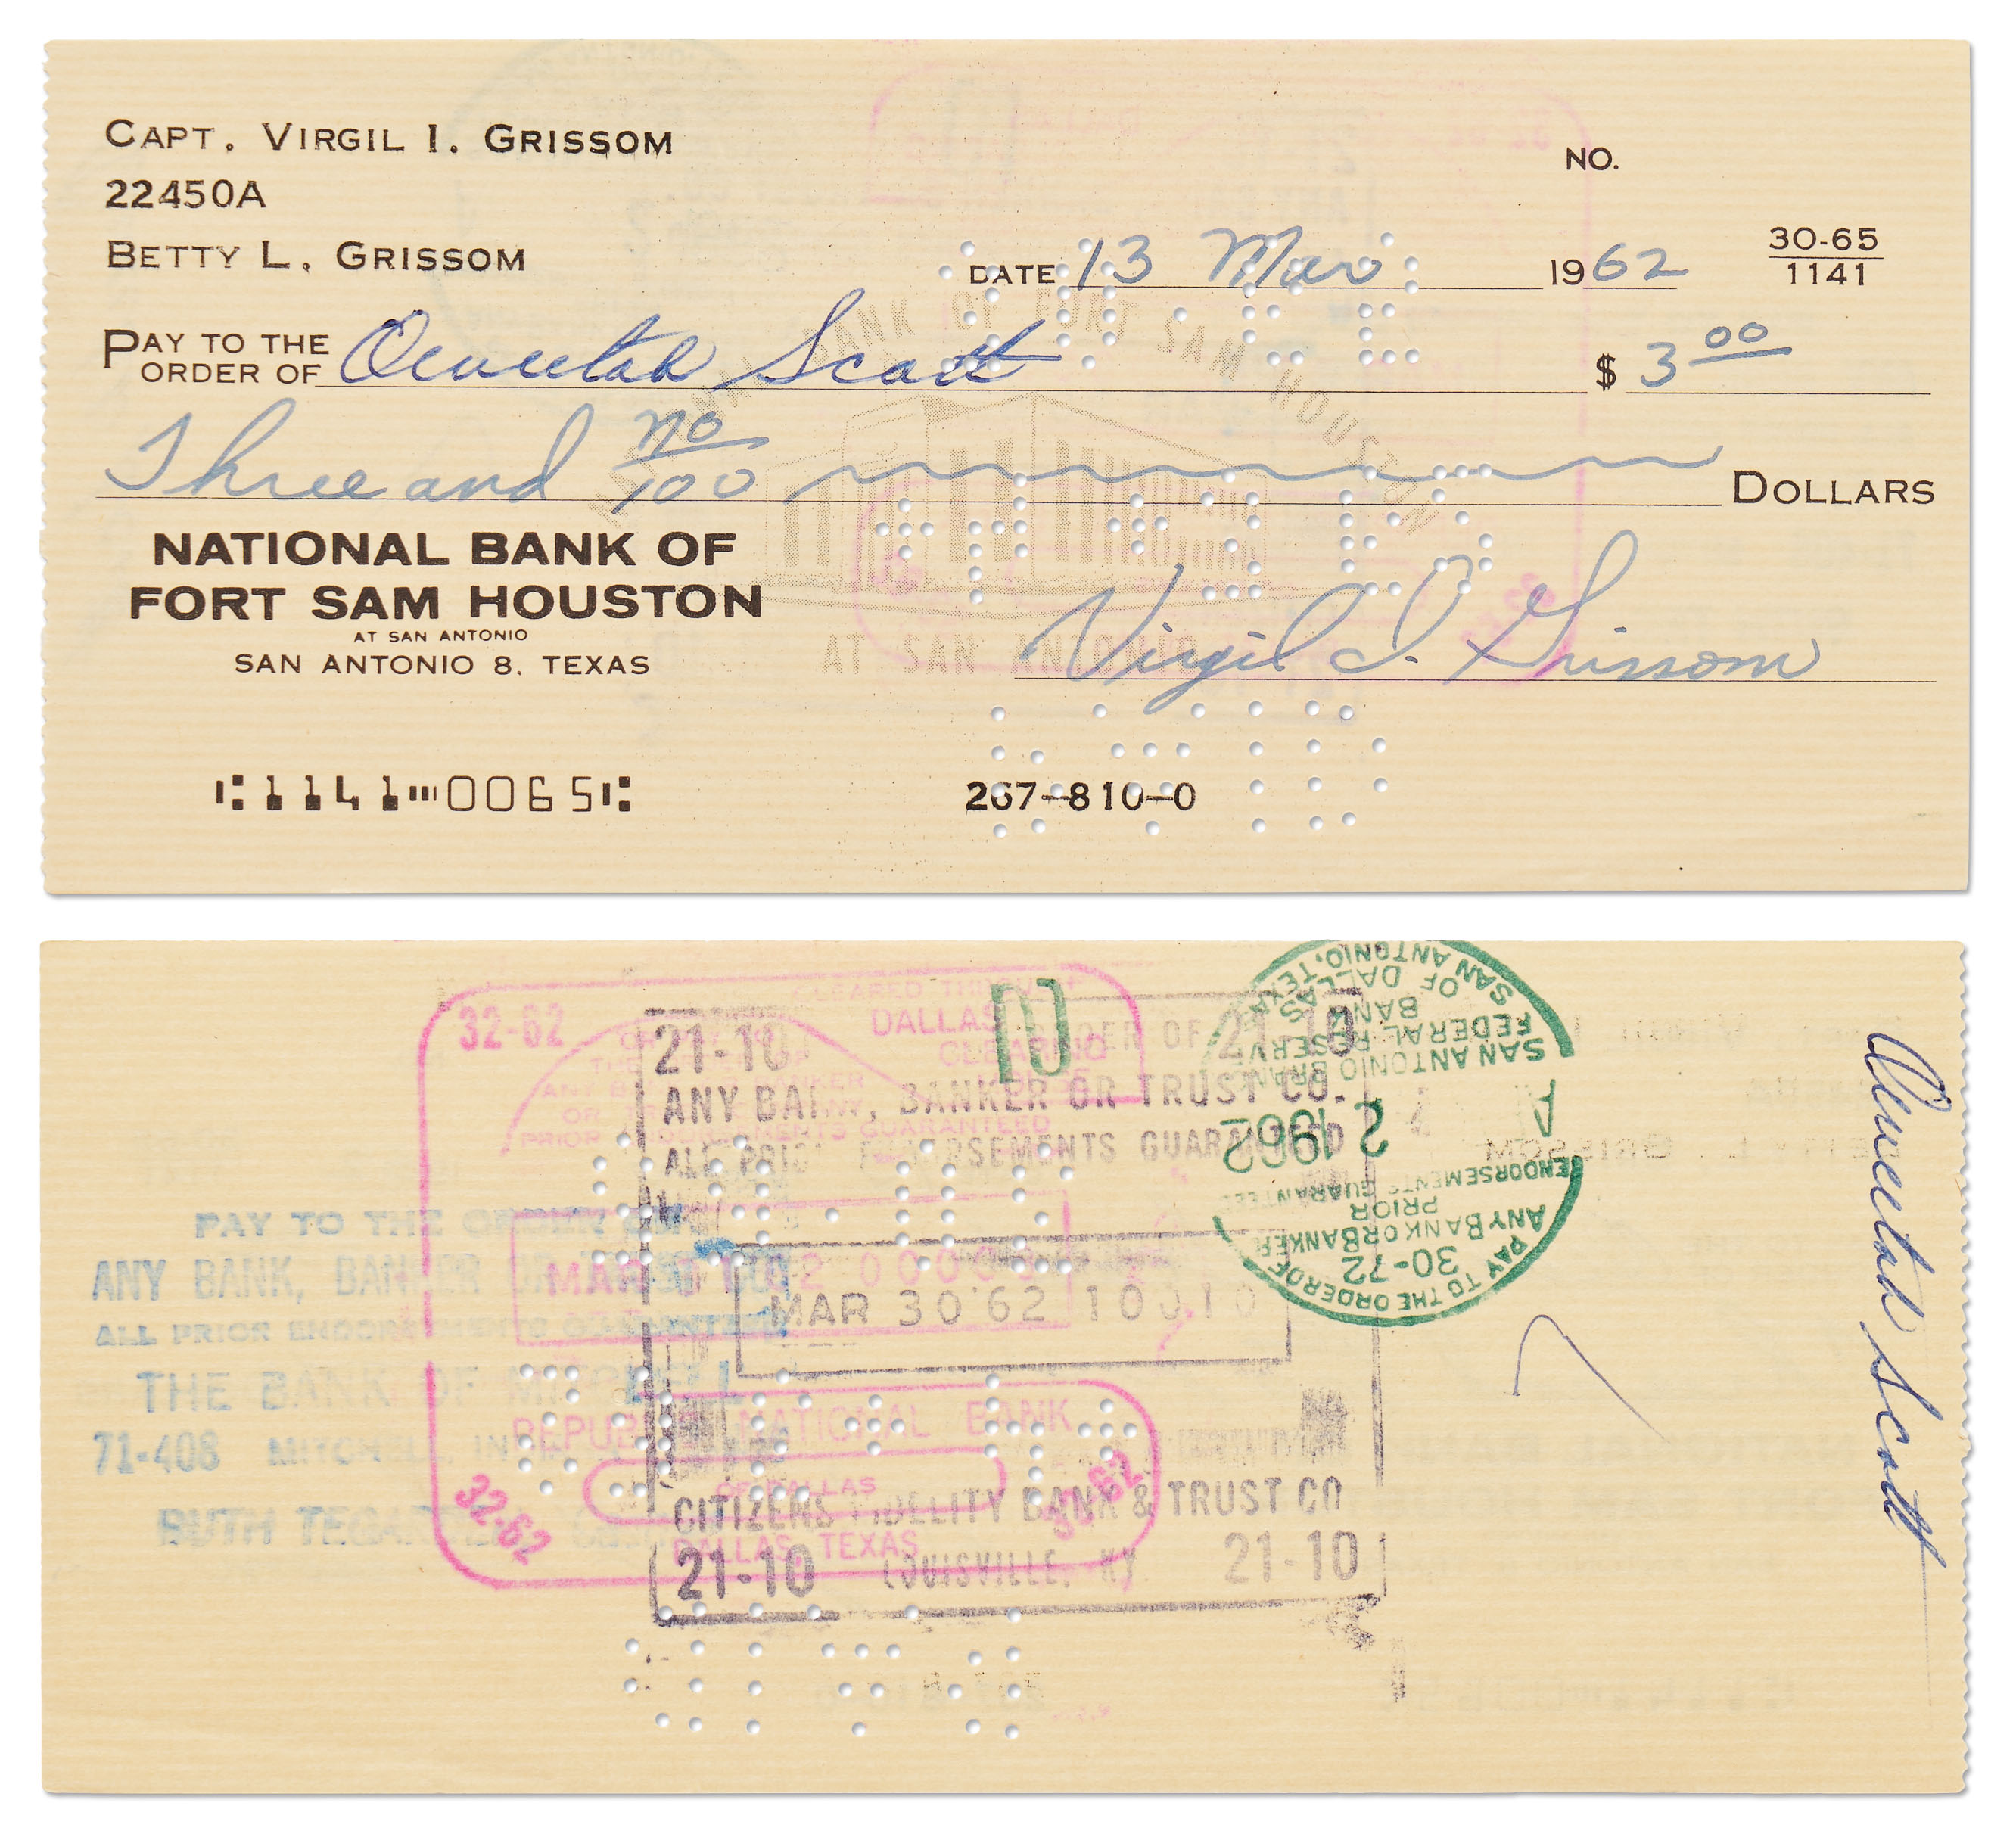 CAPT. VIRGIL I. GRISSOM
22450A
BETTY L. GRISSOM
NO.
DATE 13 Mar 1962
30-65
1141
PAY TO THE ORDER OF Scott $ 3 00
Three and no/100 DOLLARS
NATIONAL BANK OF FORT SAM HOUSTON
AT SAN ANTONIO
NATIONAL BANK OF
FORT SAM HOUSTON
AT SAN ANTONIO
SAN ANTONIO 8, TEXAS
Virgil I. Grissom
1141 0065
267-810-0
32-62
DALLAS
CLEARING
21-10 ORDER OF 21-10
ANY BANK, BANKER OR TRUST CO.
ALL PRIOR ENDORSEMENTS GUARANTEED
MAR 30 '62
CITIZENS FIDELITY BANK & TRUST CO
21-10 LOUISVILLE, KY. 21-10
REPUBLIC NATIONAL BANK
OF DALLAS
DALLAS, TEXAS
32-62
32-62
PAY TO THE ORDER OF
ANY BANK, BANKER OR TRUST CO.
ALL PRIOR ENDORSEMENTS GUARANTEED
THE BANK OF MITCHELL
71-408 MITCHELL, IND.
RUTH
PAY TO THE ORDER OF
30-72
ANY BANK OR BANKER
PRIOR
ENDORSEMENTS GUARANTEED
2 1962
A
SAN ANTONIO BRANCH
FEDERAL RESERVE
BANK
OF DALLAS
SAN ANTONIO, TEXAS
Scott